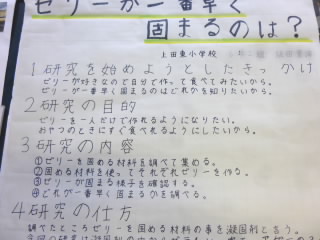 ゼリーが一番早く
固まるのは？
上田東小学校
1 研究を始めようとしたきっかけ
ゼリーが好きなので自分で作って食べてみたいから。
ゼリーが一番早く固まるのはどれかを知りたいから。
2 研究の目的
ゼリーを一人だけで作れるようになりたい。
おやつのときにすぐ食べれるようにしたいから。
3 研究の内容
①ゼリーを固める材料を調べて集める。
②固める材料を使ってそれぞれゼリーを作る。
③ゼリーが固まる様子を確認する。
④どれが一番早く固まるかを調べる。
4 研究の仕方
調べたところゼリーを固める材料の事を凝固剤と言う。